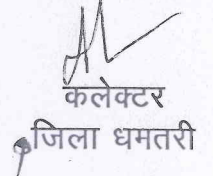 कलेक्टर
जिला धमतरी